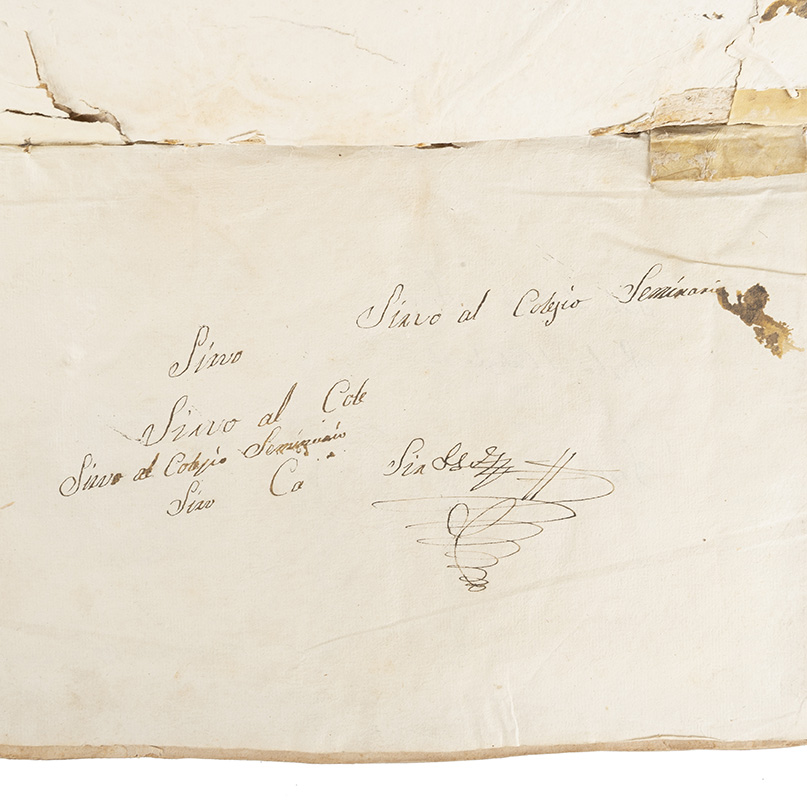 Sirvo al Colegio Seminario
Sirvo
Sirvo al Cole
Sirvo al Colegio Seminario
Sirv Ca
Sir